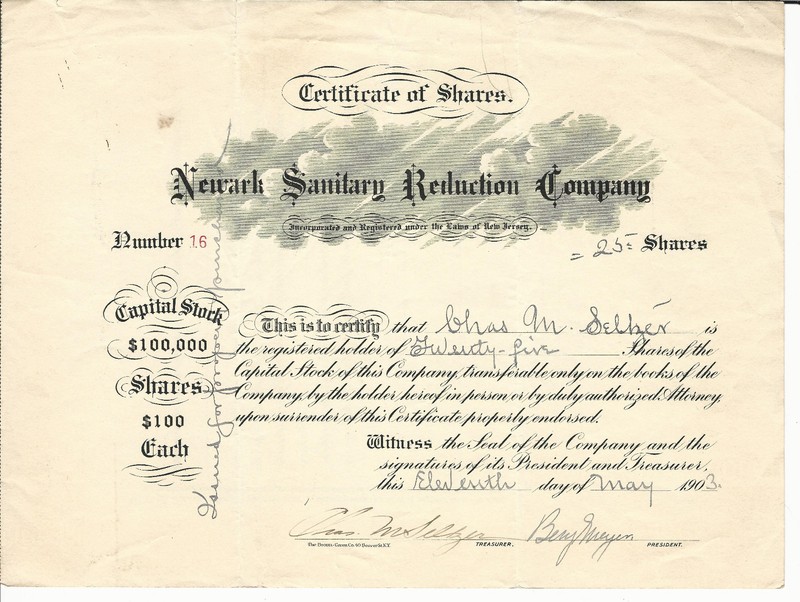 Certificate of Shares.
Newark Sanitary Reduction Company
Incorporated and Registered under the Laws of New Jersey.
Number 16
= 25 = Shares
Capital Stock
$100,000
Shares
$100
Each
Issued for property purchased
This is to certify that Chas M. Seltzer is
the registered holder of Twenty-five Shares of the
Capital Stock of this Company, transferable only on the books of the
Company, by the holder hereof in person or by duly authorized Attorney
upon surrender of this Certificate properly endorsed.
Witness the Seal of the Company and the
signatures of its President and Treasurer,
this Eleventh day of May 1903.
Chas. M Seltzer TREASURER. Benj Meyer PRESIDENT.